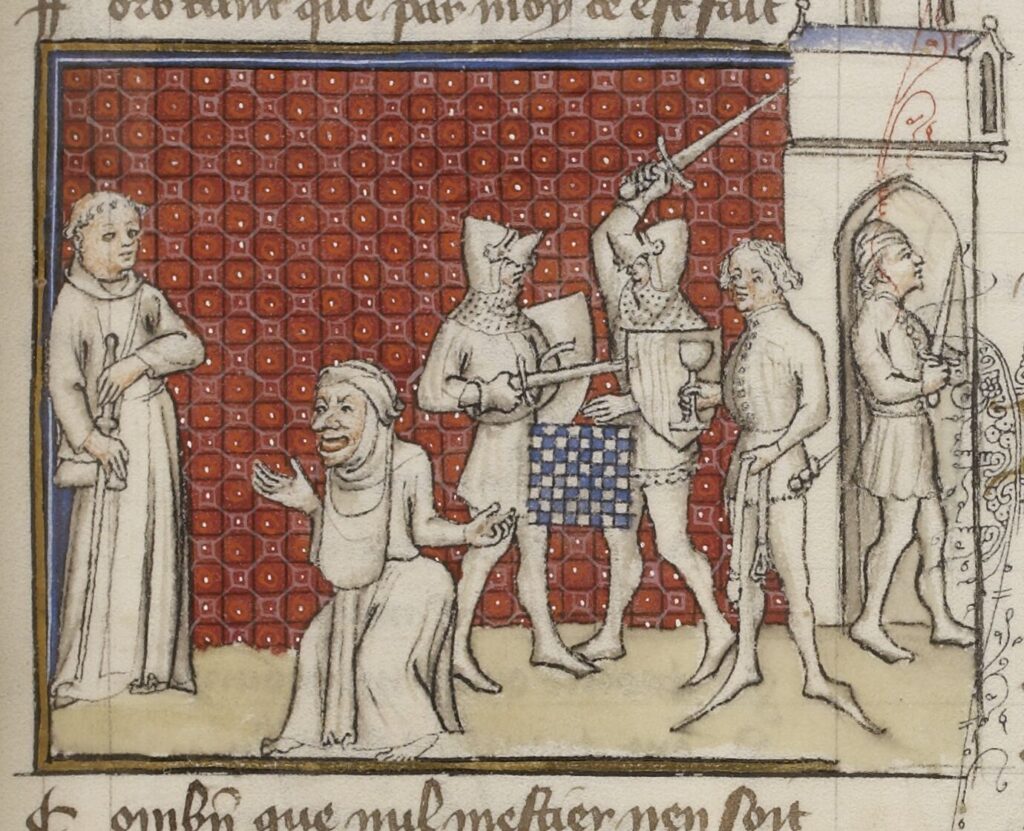 ors tant que par moy ce est fait
Combn̄ que nul mestier nen soit